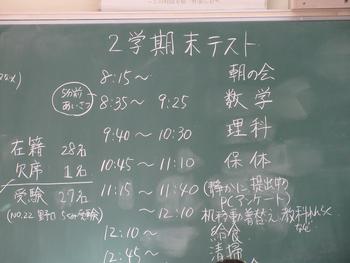 2学期末テスト
8:15〜 朝の会
5分前
あいさつ
8:35〜 9:25 数学
9:40〜10:30 理科
在籍 28名
欠席 1名
受験 27名
(NO.22 野口 5分受験)
10:45〜11:10 保体
11:15〜11:40 (静かに提出中
PCアンケート)
〜12:10 机移動、着替え、教科れんらく
など
12:10〜 給食
12:45〜 清掃